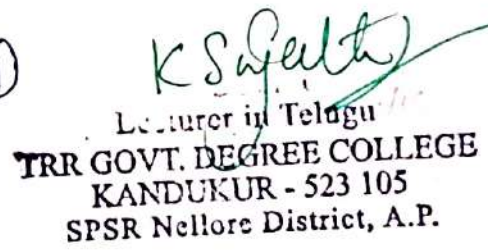 K Sujatha
Lecturer in Telugu
TRR GOVT. DEGREE COLLEGE
KANDUKUR - 523 105
SPSR Nellore District, A.P.